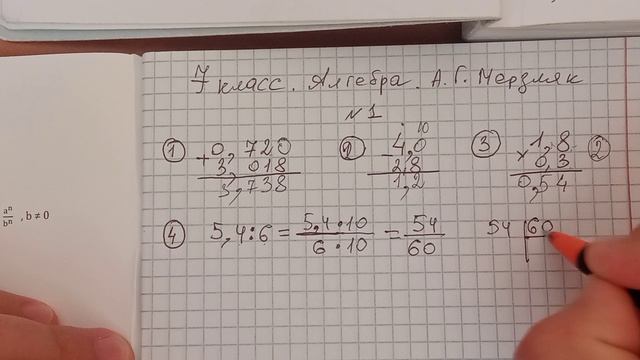 7 класс. Алгебра. А. Г. Мерзляк
№1
① +0,720
3,018
3,738
② 10
-4,0
2,8
1,2
③ ×1,8
0,3
0,54
②
④ 5,4:6 = 5,4·10 / 6·10 = 54 / 60
54 | 60
aⁿ / bⁿ , b ≠ 0